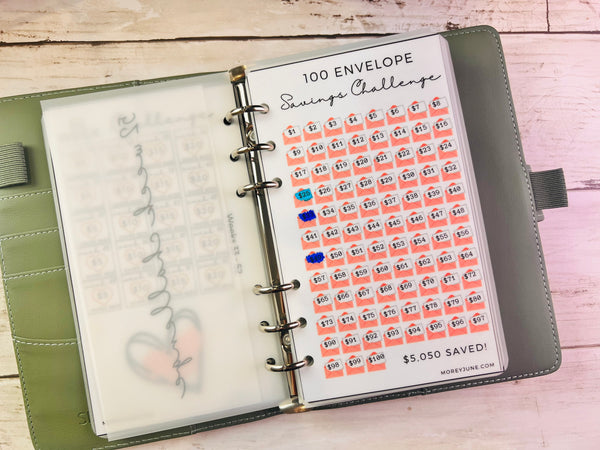 100 ENVELOPE
Savings Challenge
$1 $2 $3 $4 $5 $6 $7 $8
$9 $10 $11 $12 $13 $14 $15 $16
$17 $18 $19 $20 $21 $22 $23 $24
$25 $26 $27 $28 $29 $30 $31 $32
$34 $35 $36 $37 $38 $39 $40
$41 $42 $43 $44 $45 $46 $47 $48
$50 $51 $52 $53 $54 $55 $56
$57 $58 $59 $60 $61 $62 $63 $64
$65 $66 $67 $68 $69 $70 $71 $72
$73 $74 $75 $76 $77 $78 $79 $80
$90 $91 $92 $93 $94 $95 $96 $97
$98 $99 $100
$5,050 SAVED!
MOREYJUNE.COM
52 week challenge